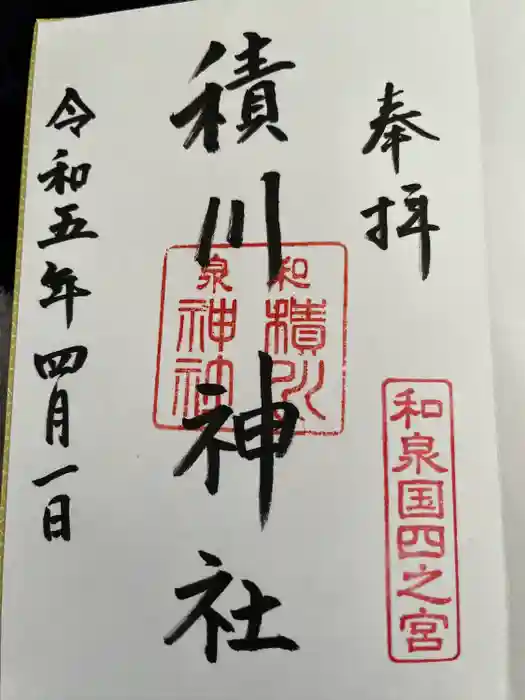 奉拝
和泉国四之宮
積川神社
和泉
令和五年四月一日